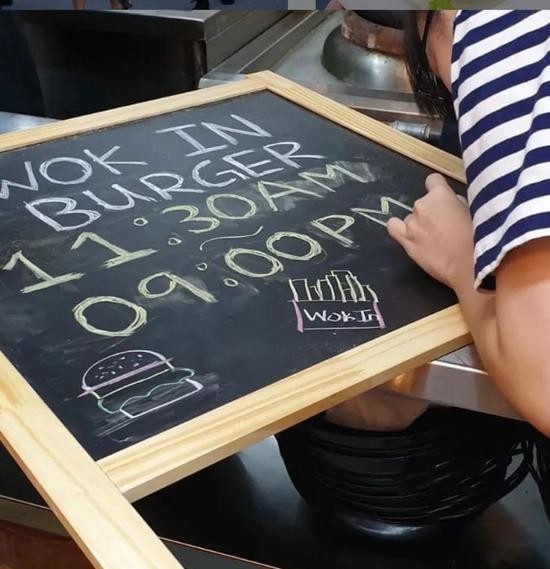 WOK IN
BURGER
11:30AM
~
09:00PM
Wok In